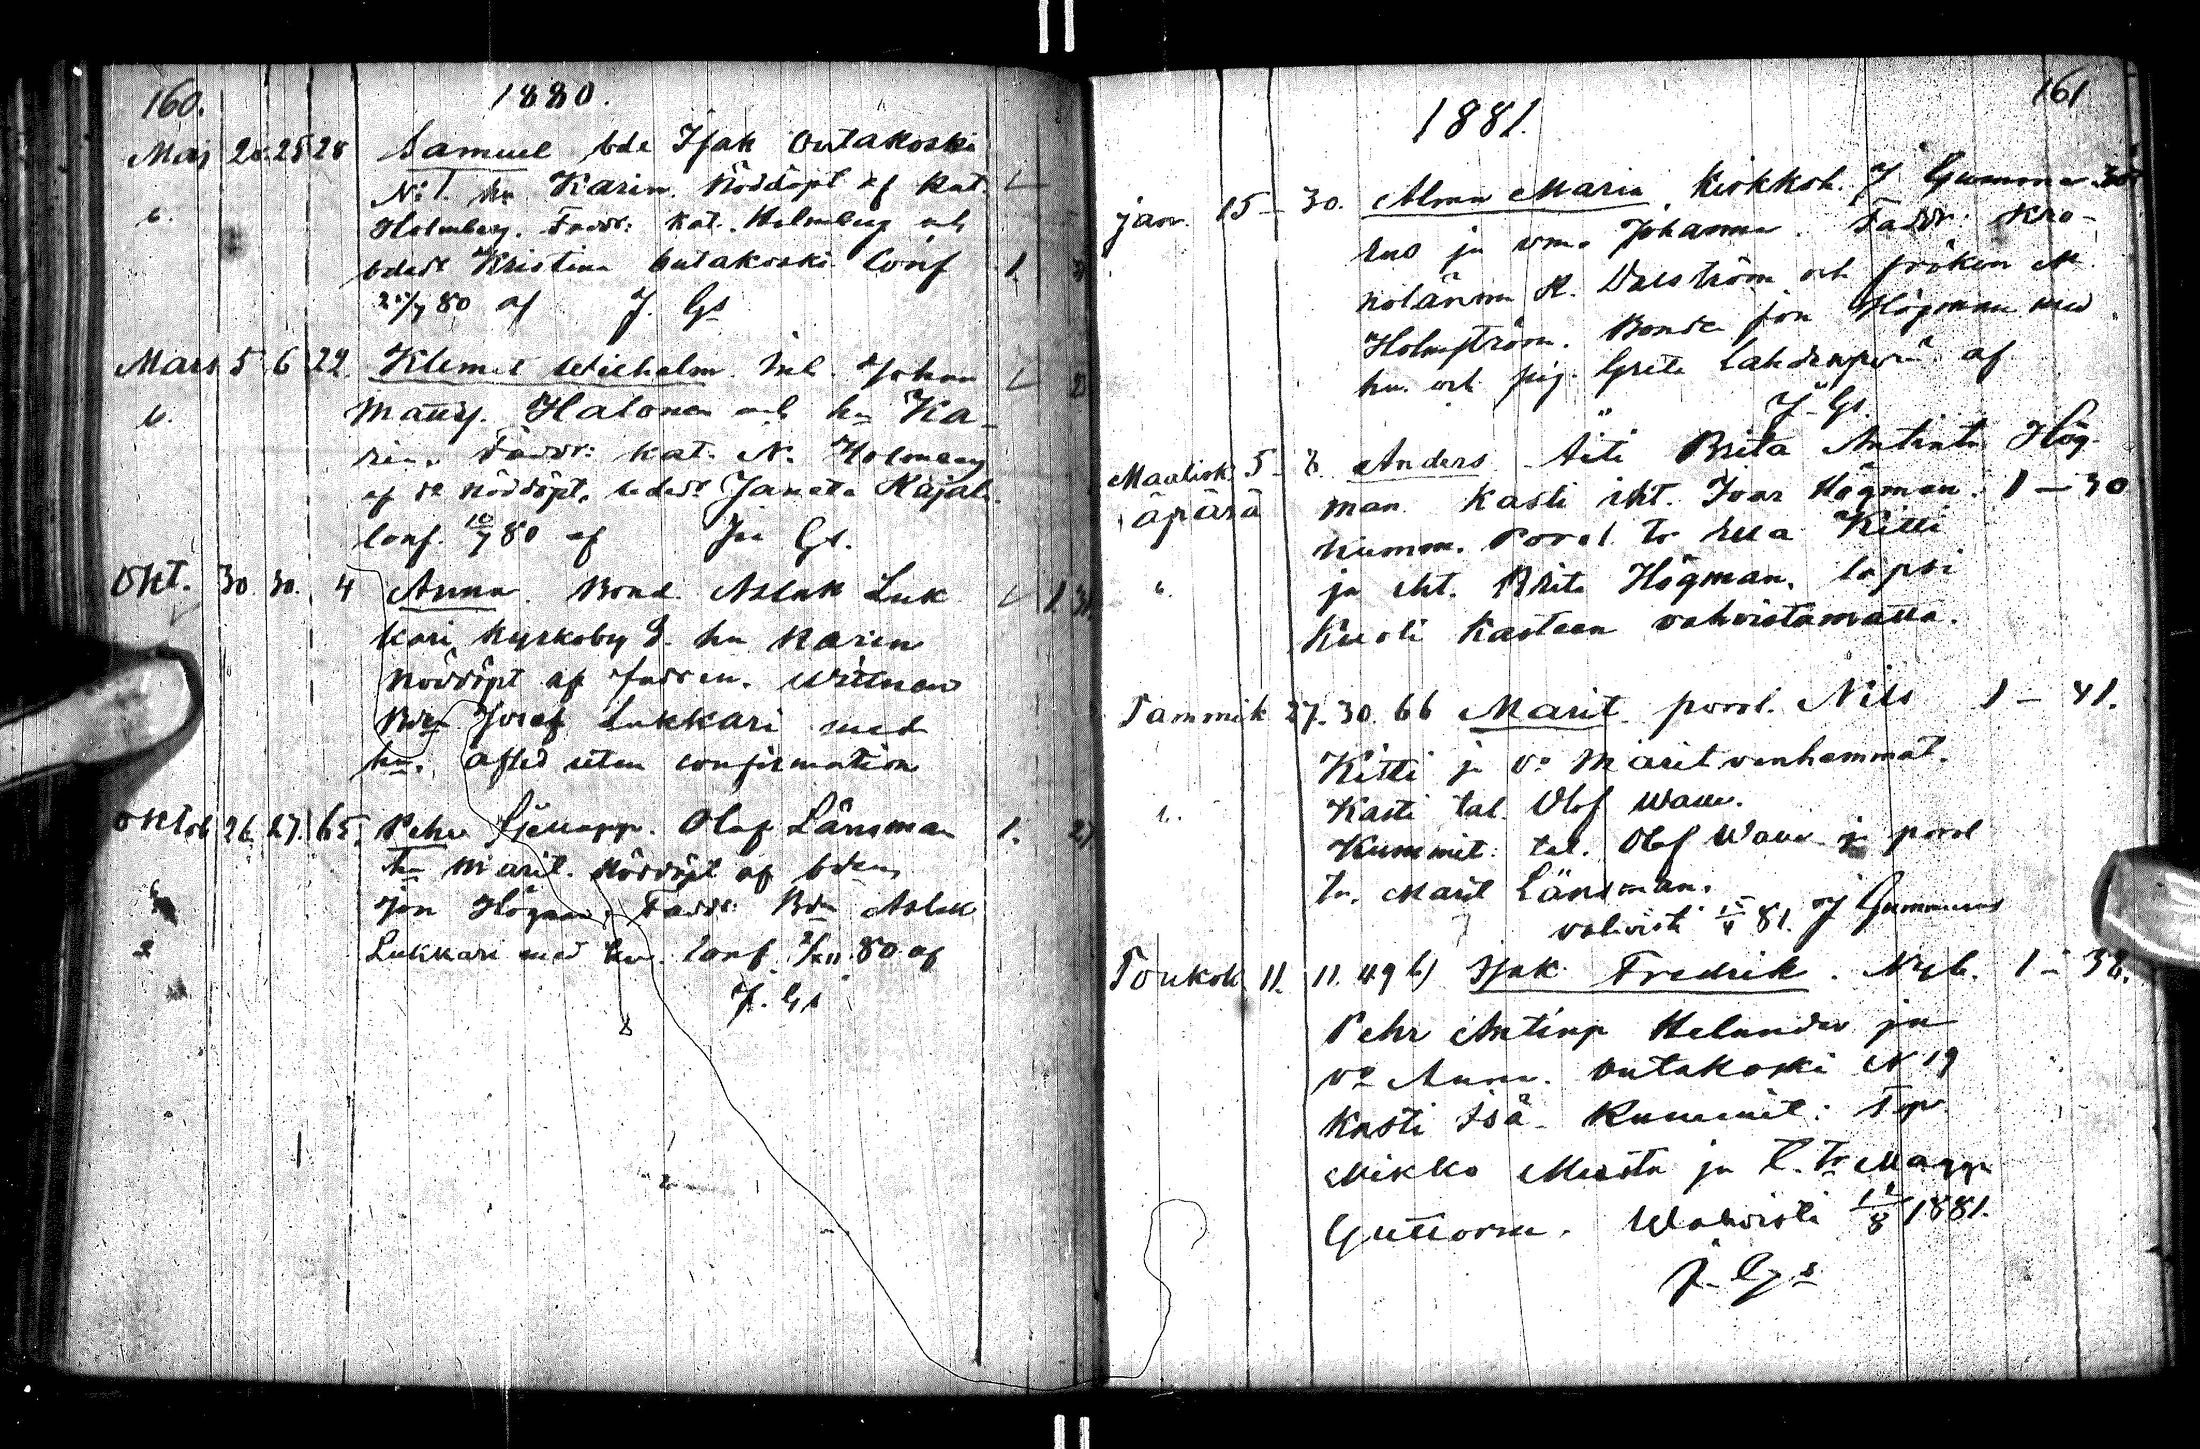 160.
1880.
Maj 20. 25 28 Samuel bde Isak Outakoski
No 1. hu Karin. Nöddöpt af kat.
Holmberg. Faddr: kat. Holmberg och
Kristina Outakoski Conf 1
80 af J. Gs
Mars 5 6 22. Klemet Wilhelm. Inh. Johan
Matts. Halonen och hu Ka-
rin. Faddr: kat. N. Holmberg
af do nöddöpt,
conf. 10/7 80 af Gs.
Okt. 30. 30. 4 Anna. Bond. Aslak Luk
kari, Kyrkoby hu Karin
Nöddöpt af fadren. Wittnen
Bdn Josef Lukkari med
hu. Afled utan confirmation
Oktob 26. 27. 65. Pehr Olof Länsman 1.
hu Marit. Nöddöpt af bden
Jon Högman. Faddr: Bdn Aslak
Lukkari med hu. Conf. 80 af
J. Gs
161
1881.
jan. 15 - 30. Alma Maria Kirkkoh. J Gumme-
rus ja vmo Johanna. Faddr: Kro-
och fröken M.
Holmström. Bonde Jon Högman med
hu. och pig. Grete af
J. Gs.
Maalisk 5 - 8. Anders Äiti Brita Antintr Hög-
äpärä man. Kasti iht. Ivar Högman. 1 - 30
kumm. Porol. tr Kitti
ja iht. Brita Högman. lapsi
Kuoli Kasteen vahvistamatta.
Tammik 27. 30. 66 Marit porol. Nils 1 - 41.
Kitti ja vo Marit vanhemmat.
Kasti tal. Olof
Kummit: tal. Olof ja porol
tr. Marit Länsman.
vahvisti 81. J Gummerus
Toukok 11. 11. 49 b) Isak Fredrik. Nyb. 1 - 38.
Pehr Antinp Helander ja
vo Anna. Outakoski N 19
Kasti isä. Kummit:
Mikko ja
Guttorm. Wahvisti 1881.
J. Gs